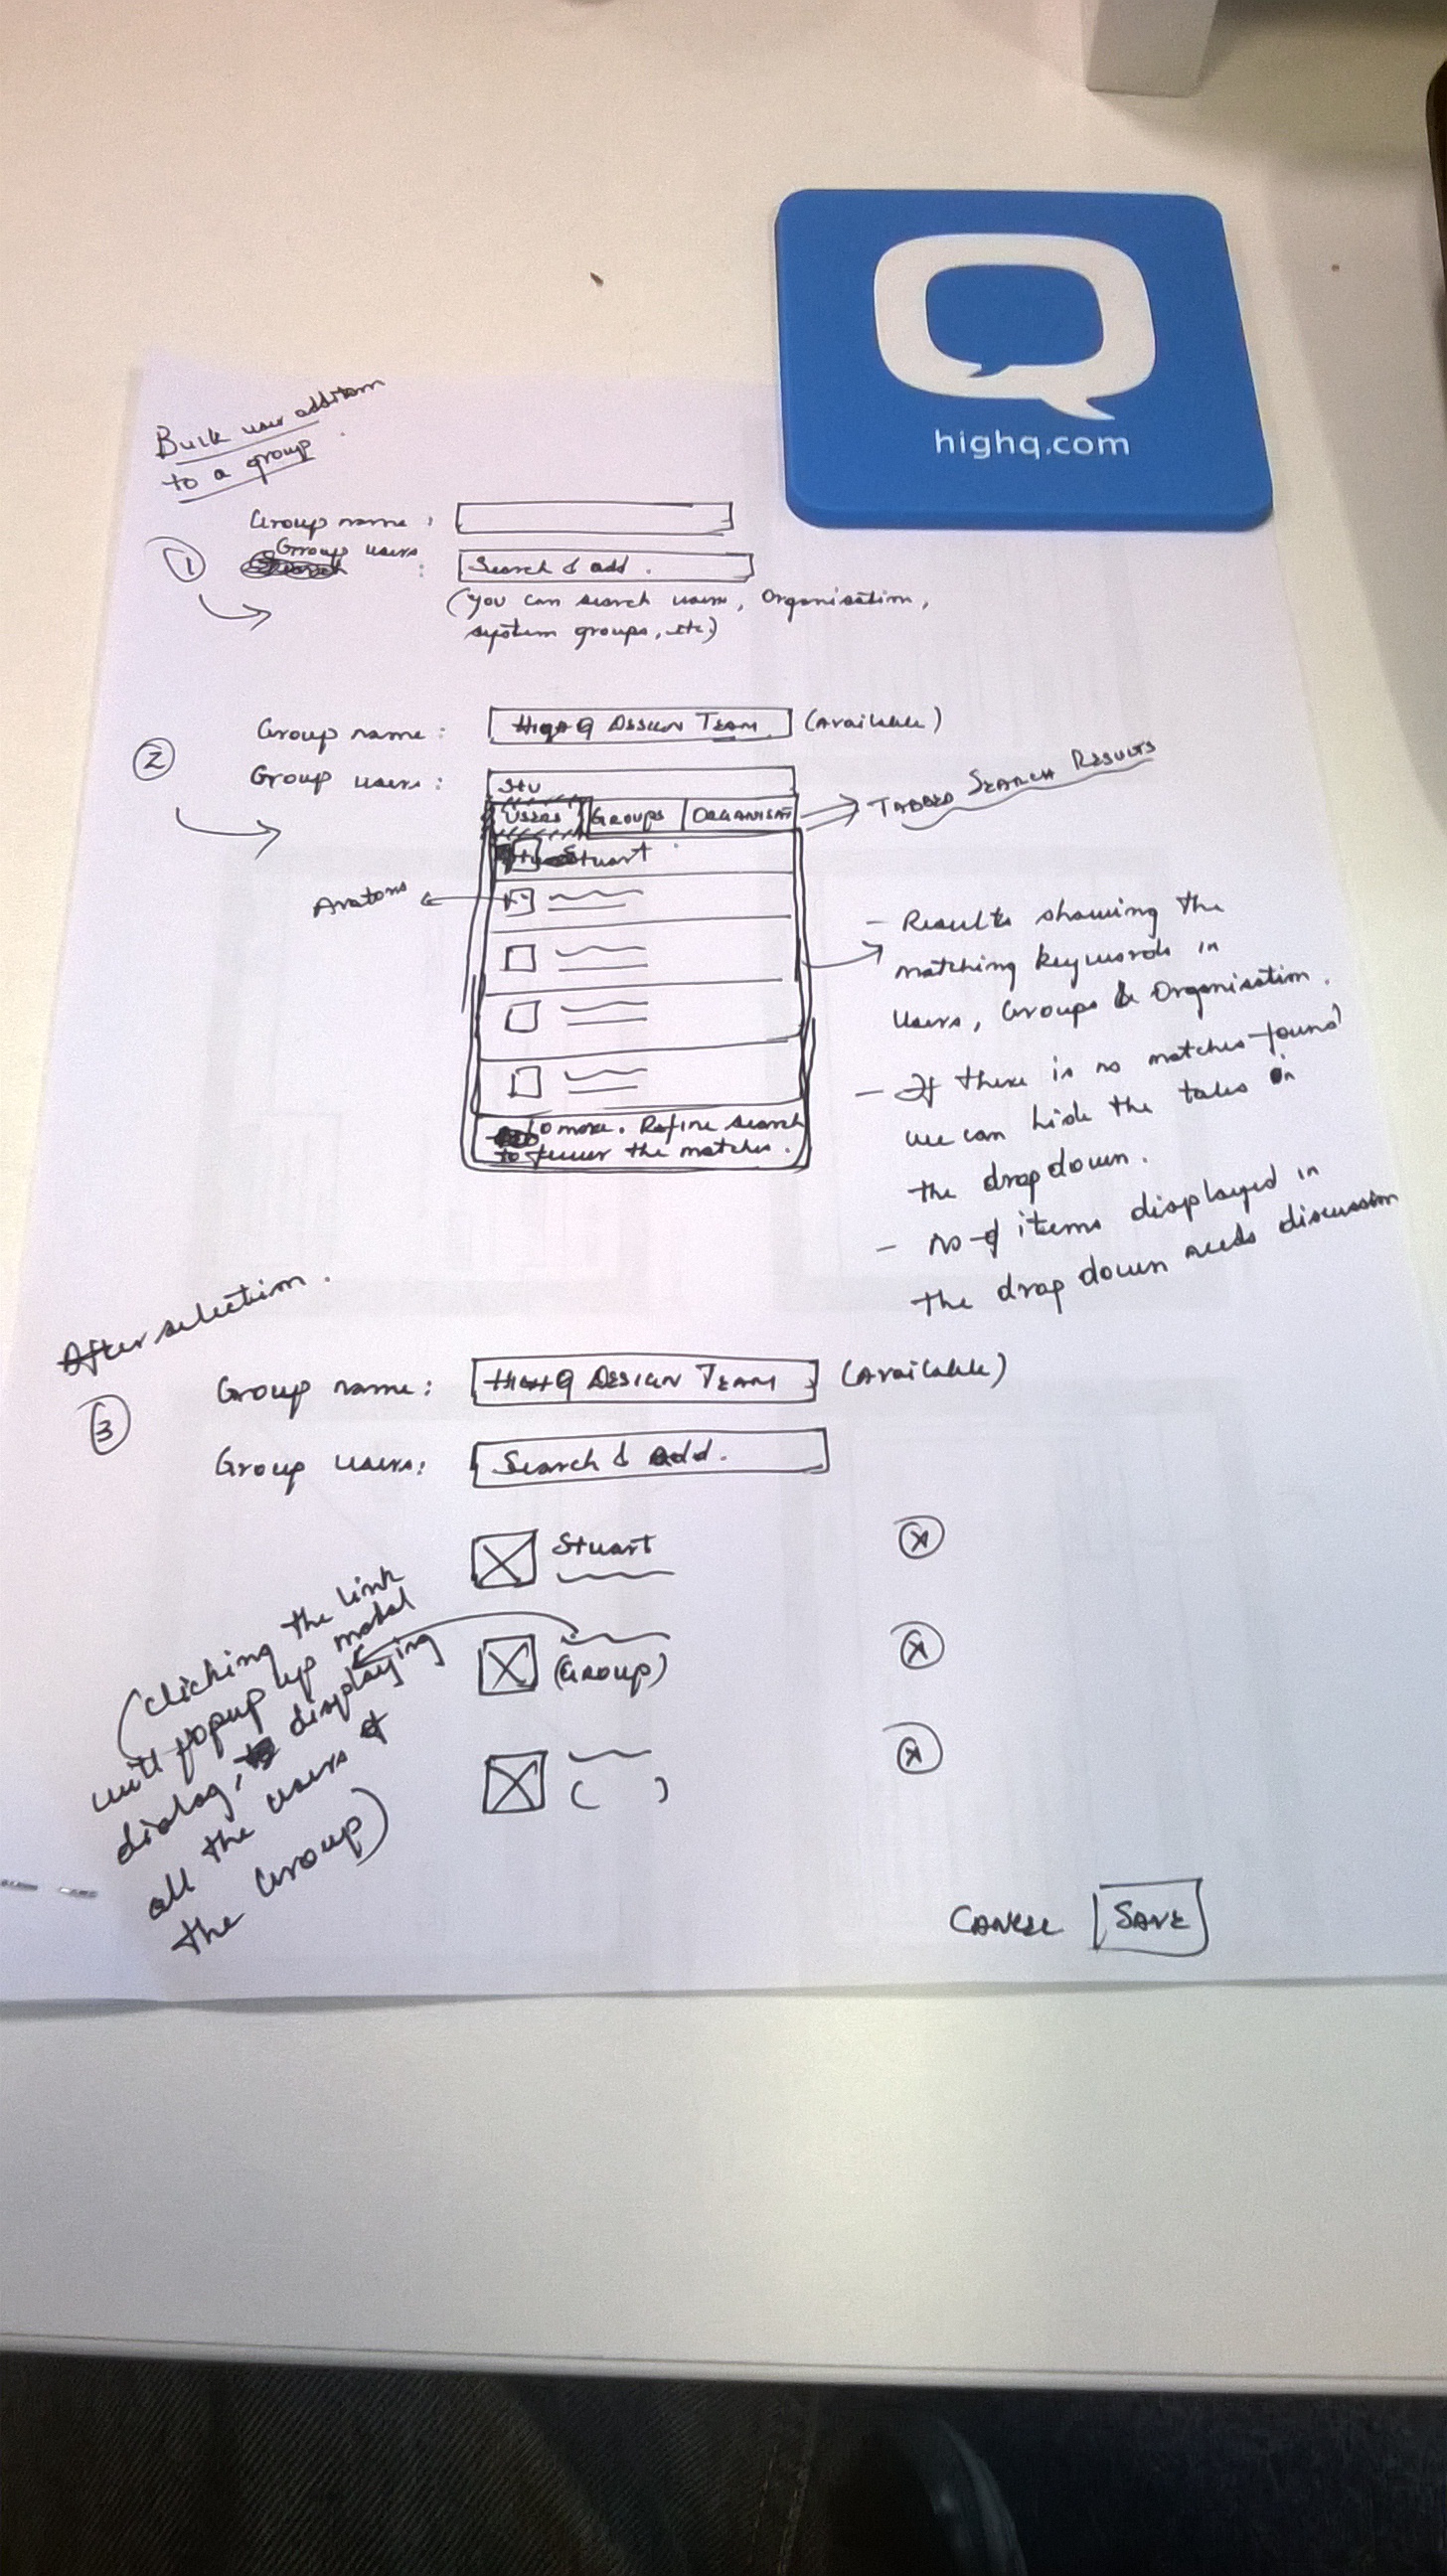 highq.com
Bulk user addition
to a group.
Group name :
① Group users :
Search & add.
(you can search users, Organisation,
system groups, etc.)
② Group name : HighQ DESIGN TEAM (Available)
Group users : Stu
USERS GROUPS ORGANISAT
TABBED SEARCH RESULTS
Stuart
Avatars
10 more. Refine search
to fewer the matches.
- Results showing the
matching keywords in
Users, Groups & Organisation.
- If there is no matches found
we can hide the tabs in
the drop down.
- No of items displayed in
the drop down needs discussion
After selection.
③ Group name : HIGHQ DESIGN TEAM (Available)
Group users : Search & add.
Stuart
(Group)
( )
(Clicking the link
will popup up modal
dialog, displaying
all the users of
the Group)
CANCEL SAVE